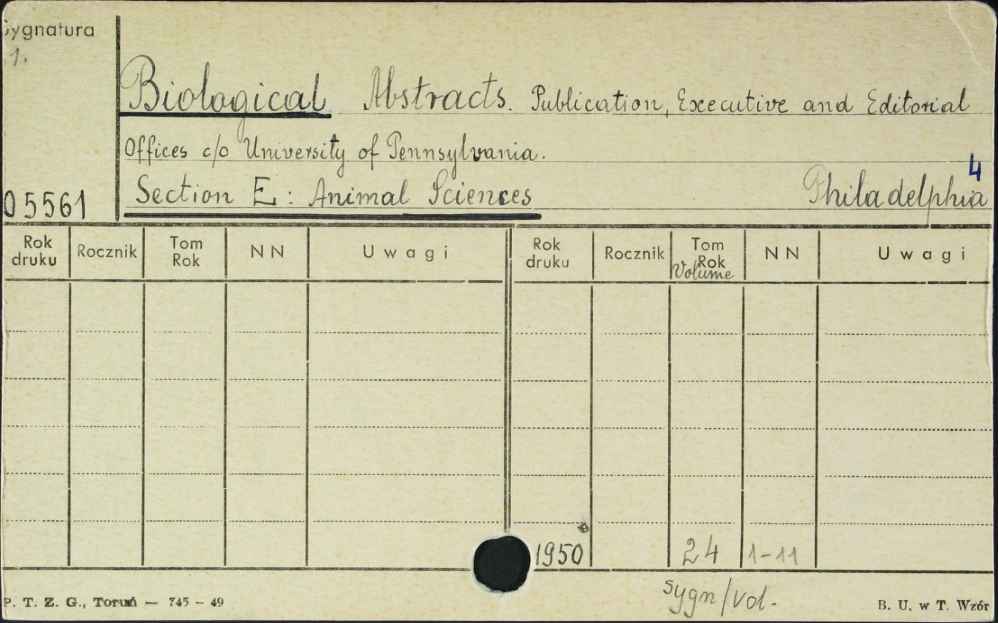 Sygnatura
1.
Biological Abstracts. Publication, Executive and Editorial
Offices c/o University of Pennsylvania.
4
05561 Section E: Animal Sciences Philadelphia
Rok druku Rocznik Tom Rok NN Uwagi Rok druku Rocznik Tom Rok Volume NN Uwagi
1950 24 1-11
sygn/vol.
P. T. Z. G., Toruń — 745 - 49 B. U. w T. Wzór